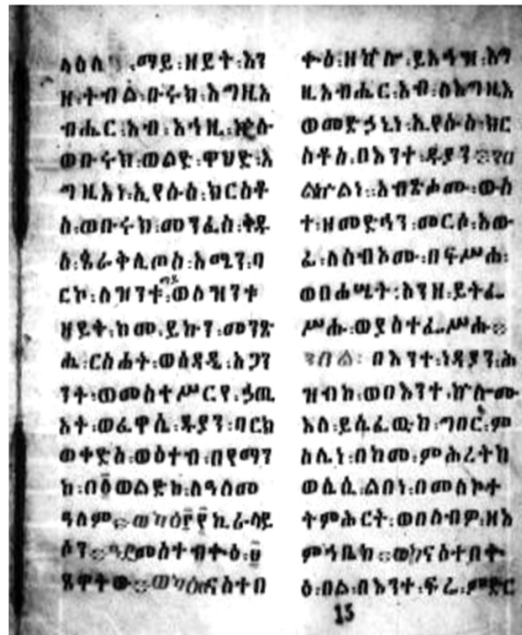 ማይ፡ዘይት፡እን
ዘ፡ትብል፡ቡሩክ፡እግዚአ
ብሔር፡አብ፡አኀዜ፡ኵሉ
ወቡሩክ፡ወልድ፡ዋህድ፡እ
ግዚእነ፡ኢየሱስ፡ክርስቶ
ስ፡ወቡሩክ፡መንፈስ፡ቅዱ
ስ፡ጰራቅሊጦስ፡አሜን፡ባ
ርኮ፡ለዝንቱ፡ወለዝንቱ
ዘይት፡ከመ፡ይኩን፡መንጽ
ሔ፡ርስሐት፡ወሰዳዴ፡አጋን
ንት፡ወመስተሥርየ፡ኃጢ
አት፡ወፈዋሴ፡ዱያን፡ባርክ
ወቀድስ፡ወዕተብ፡በየማን
ከ፡በ፩ወልድከ፡ለዓለመ
ዓለም። ኪራላይ
ሶን።ዓዲመስተብቍዕ፡፱
ጸዋትው። ናስተበ
ቍዕ፡ዘኵሎ፡ይእኅዝ፡እግ
ዚአብሔር፡አብ፡ለእግዚእ
ወመድኃኒነ፡ኢየሱስ፡ክር
ስቶስ፡በእንተ፡ዱያን።
አብጽሖሙ፡ውስ
ተ፡ዘመድኃን፡መርሶ፡አው
በፍሥሐ፡
ወበሐሤት፡እንዘ፡ይትፌ
ሥሑ፡ወያስተፌሥሑ።
በእንተ፡ነዳያን፡ሕ
ዝብከ፡ወበእንተ፡ኵሎሙ
እለ፡ይሴፈዉከ፡ግበር፡ም
ስሌነ፡በከመ፡ምሕረትከ
ልበነ፡በመስኮተ
ትምሕርት፡ ዘእ
ምኀቤከ። ናስተበቍ
ዕ፡በል፡በእንተ፡ፍሬ፡ምድር
15